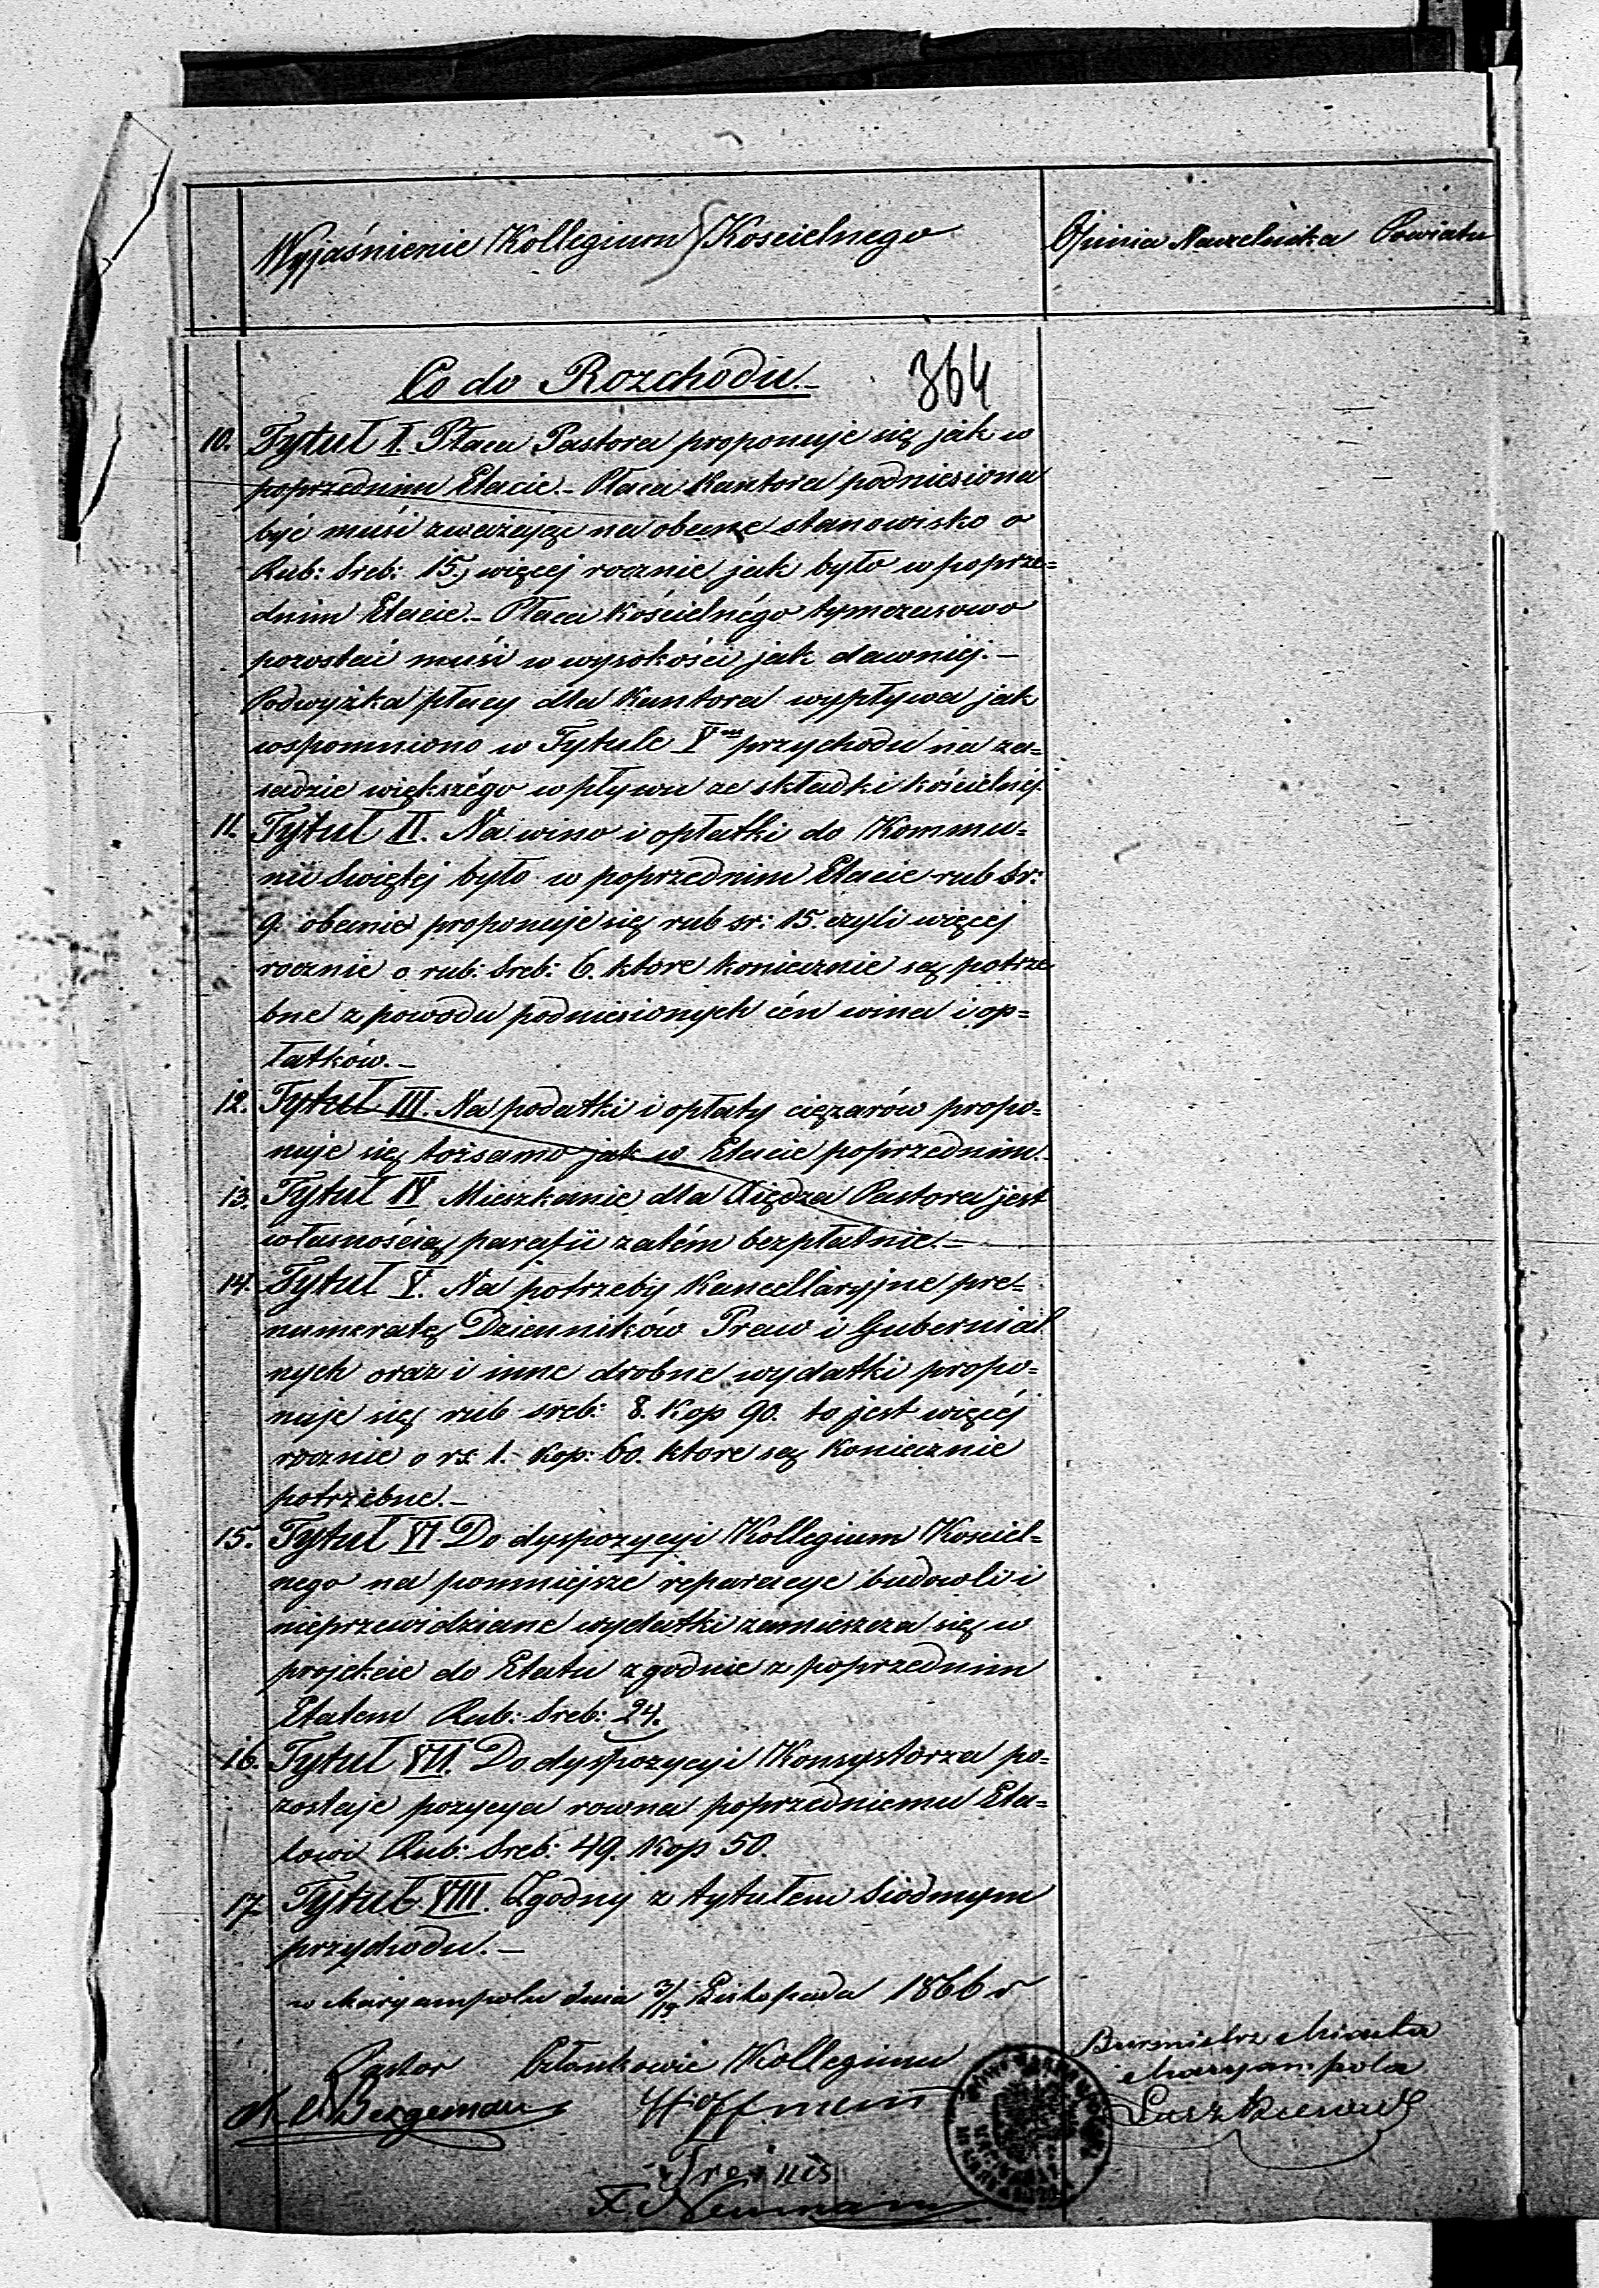 Wyjaśnienie Kollegium Kościelnego
Opinia Naczelnika Powiatu
364
Co do Rozchodu.-
10. Tytuł I. Płaca Pastora proponuje się jak w
poprzednim Etacie.- Płaca Kantora podniesiona
być musi zważając na obecne stanowisko o
Rub: Sreb: 15, więcej rocznie jak było w poprze-
dnim Etacie.- Płaca Kościelnégo tymczasowo
pozostać musi w wysokości jak dawniéj.-
Podwyżka płacy dla Kantora wypływa jak
wspomniono w Tytule V m przychodu na za-
sadzie większégo wpływu ze składki kościelnéj
11. Tytuł II. Na wino i opłatki do Kommu-
nii Swiętéj było w poprzednim Etacie rub sr:
9. obecnie proponuje się rub sr: 15. czyli więcéj
rocznie o rub: Sreb: 6. ktore koniecznie są potrze
bne z powodu podniesionych cén wina i op-
łatków.-
12. Tytuł III. Na podatki i opłaty ciężarów propo-
nuje się tożsamo jak w Etacie poprzednim.
13. Tytuł IV Mieszkanie dla Xiędza Pastora jest
własnością parafii zatém bezpłatnie.-
14. Tytuł V. Na potrzeby Kancellaryjne pre-
numeratę Dzienników Praw i Gubernial
nych oraz i inne drobne wydatki propo-
nuje się rub sreb: 8. Kop 90. to jest więcéj
rocznie o rs 1.- Kop: 60. ktore są Koniecznie
potrzebne.-
15. Tytuł VI. Do dyspozycyi Kollegium Kościel-
nego na pomniejsze reparacye budowli i
nieprzewidziane wydatki zamieszcza się w
projekcie do Etatu zgodnie z poprzednim
Etatem Rub: Sreb: 24.
16. Tytuł VII. Do dyspozycyi Konsystorza po-
zostaje pozycya rowna poprzedniemu Eta-
towi Rub: Sreb: 49. Kop 50.
17. Tytuł VIII. Zgodny z tytułem Siodmym
przychodu.-
w Maryampolu dnia 3/19 Listopada 1866 r
Pastor Członkowie Kollegium
Burmistrz Miasta
Maryampola
Bergemann Hoffmann
F. Neumann